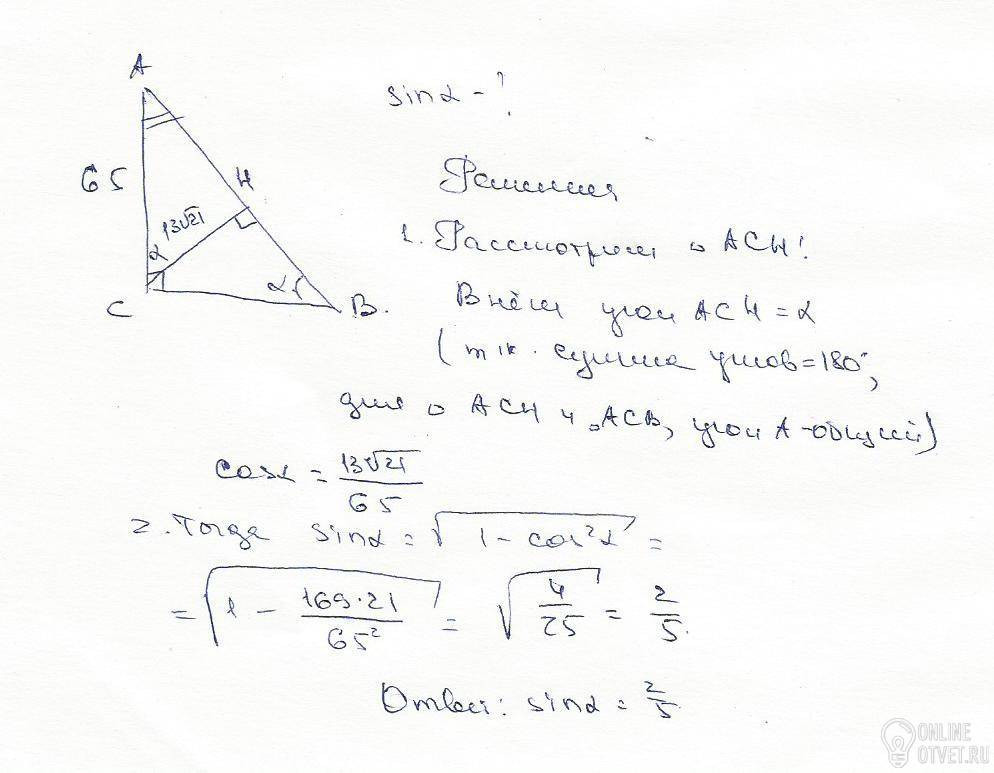 A
sinα - ?
65
H
13√21
α
C
α
B.
Решение
1. Рассмотрим △ ACH:
В нём угол ACH = α
(т.к. сумма углов = 180°,
для △ ACH и △ACB, угол A - общий)
cosα = 13√21 / 65
2. Тогда sinα = √(1 - cos²α) =
= √(1 - 169·21 / 65²) = √(4/25) = 2/5.
Ответ: sinα = 2/5
ONLINE
OTVET.RU